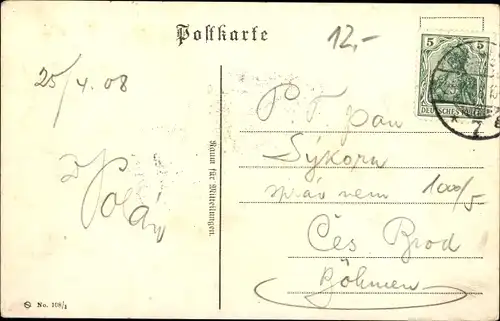 Postkarte
12.-
5
DEUTSCHES REICH
25/4.08
P. T. Pan
Sýkora
Raum für Mitteilungen.
1000/5
Polán
Čes Brod
Böhmen
No. 108/1